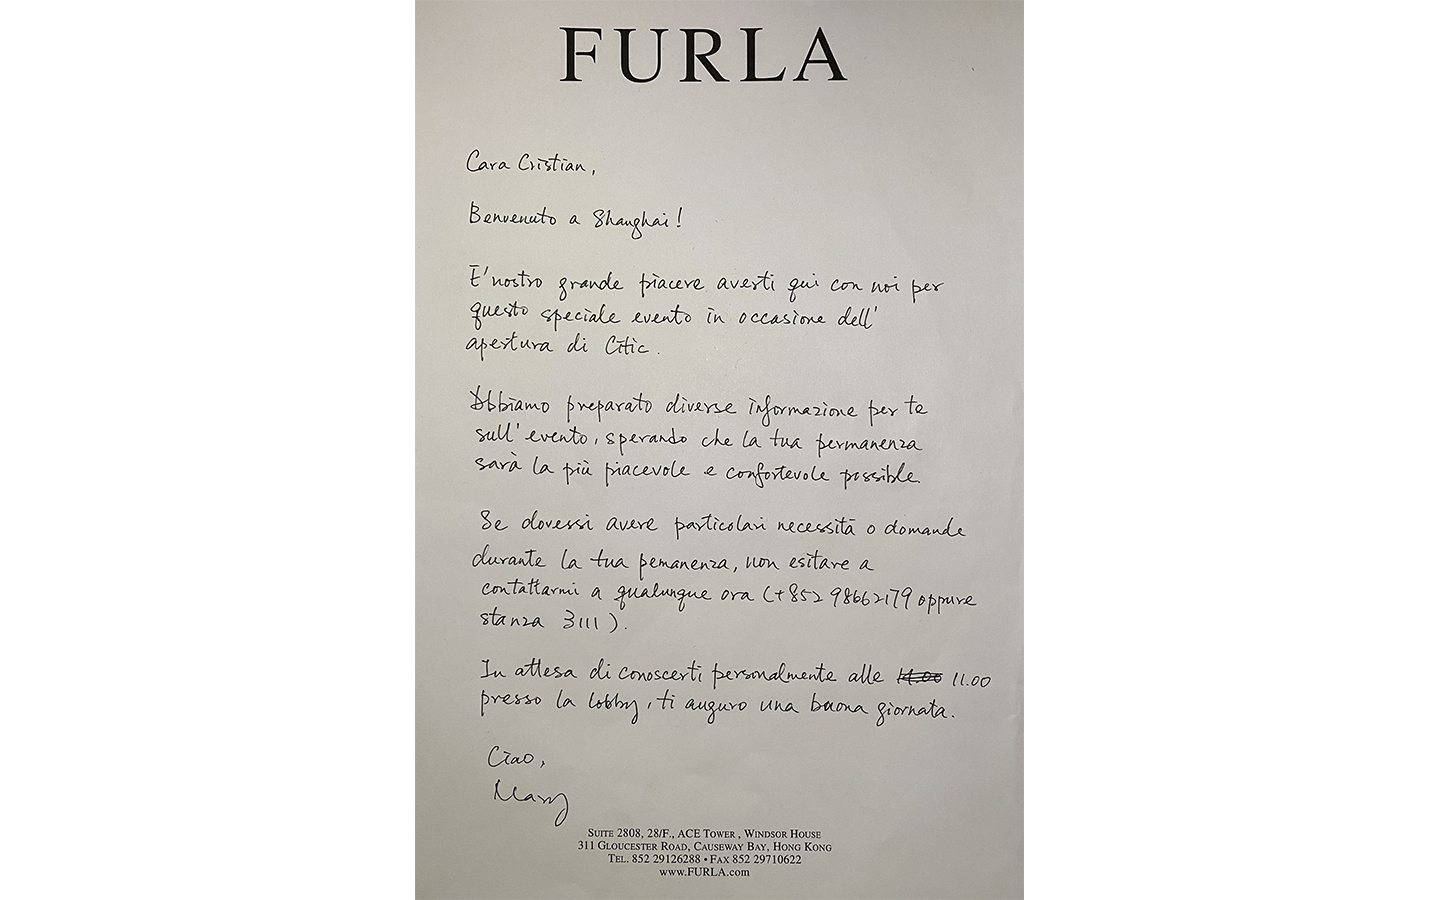 FURLA
Cara Cristian,
Benvenuto a Shanghai!
E' nostro grande piacere averti qui con noi per
questo speciale evento in occasione dell'
apertura di Citic.
Abbiamo preparato diverse informazione per te
sull'evento, sperando che la tua permanenza
sarà la più piacevole e confortevole possible.
Se dovessi avere particolari necessità o domande
durante la tua pemanenza, non esitare a
contattarmi a qualunque ora (+852 98662179 oppure
stanza 3111).
In attesa di conoscerti personalmente alle 11.00
presso la lobby, ti auguro una buona giornata.
Ciao,
Mary
SUITE 2808, 28/F., ACE TOWER, WINDSOR HOUSE
311 GLOUCESTER ROAD, CAUSEWAY BAY, HONG KONG
TEL. 852 29126288 • FAX 852 29710622
www.FURLA.com